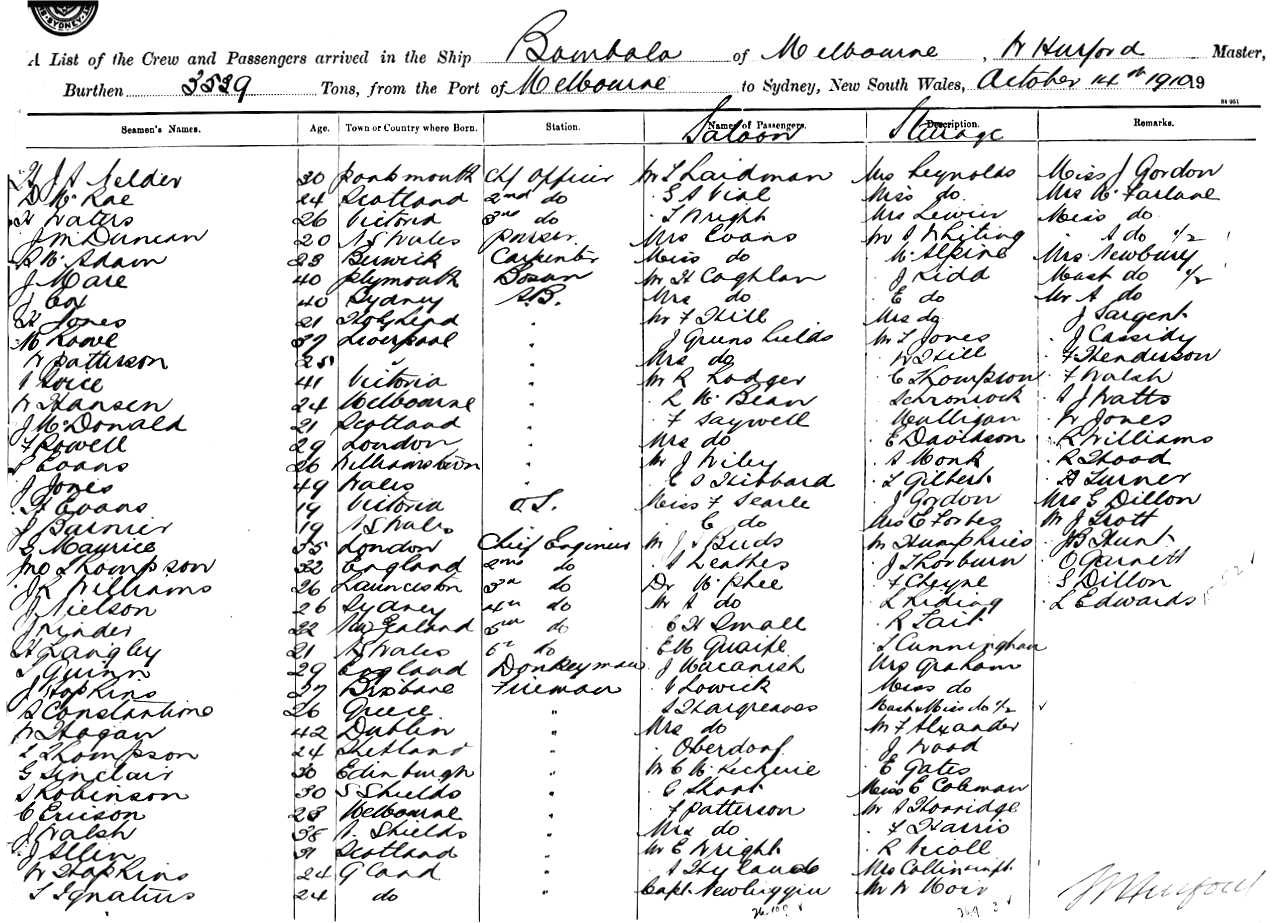 SYDNEY
A List of the Crew and Passengers arrived in the Ship Bombala of Melbourne, W Hurford Master,
Burthen 3539 Tons, from the Port of Melbourne to Sydney, New South Wales, October 14th 1910 19
Seamen's Names. Age. Town or Country where Born. Station. Names of Passengers. Saloon Description. Steerage Remarks.
H J A Nelder 30 Portsmouth Chf Officer Mr T Laidman Mrs Reynolds Miss J Gordon
D McRae 24 Scotland 2nd do G A Vial Miss do Mrs McFarlane
H Waters 26 Victoria 3rd do T Wright Mrs Lewin Miss do
J M Duncan 20 N S Wales Purser Mrs Evans Mr S Whiting A do 1/2
McAdam 23 Berwick Carpenter Miss do McAlpine Mrs Newbury
J Mare 40 Plymouth Bosun Mr H Coghlan J Kidd Mast do 1/2
Cox 40 Sydney A.B. Mrs do E do Mr A do
H Jones 21 Holyhead " Mr F Hill Mrs do J Sargent
M Lowe 37 Liverpool " J Greenshields Mr T Jones J Cassidy
W Patterson 25 " " Mrs do W Hill F Henderson
41 Victoria " Mr R Lodger C Thompson F Walsh
W Hansen 24 Melbourne " R McBean S J Watts
J McDonald 21 Scotland " F Saywell Mulligan W Jones
F Powell 29 London " Mrs do E Davidson R Williams
Evans 26 Williamstown " Mr J Wiley A Monk R Hood
J Jones 49 Wales " E S Hibbard T Gilbert H Turner
H Evans 19 Victoria O.S. Miss F Searle J Gordon Mrs G Dillon
J Barnier 19 N S Wales C do Mrs E Forbes Mr J Trott
G Maurice 35 London Chief Engineer Mr J S Buds Mr Humphries J B Hunt
Jno Thompson 32 England 2nd do S Leathes J Thorburn O Garnett
J R Williams 26 Launceston 3rd do Dr McPhee F Cheyne S Dillon
J Nielson 26 Sydney 4th do Mr A do L Riding L Edwards
J Rinder 22 New Zealand 5th do E H Small R Tait
H Langley 21 N S Wales 6th do E M Quaife L Cunningham
T Quinn 29 England Donkeyman J Macanish Mrs Graham
J Hopkins 37 Brisbane Fireman Lowick Miss do
A Constantine 26 Greece " S Hargreaves Mast & Miss do 1/2
W Hogan 42 Dublin " Mrs do Mr F Alxander
L Thompson 24 Shetland " Oberdorf J Wood
G Sinclair 30 Edinburgh " Mr C McKechnie E Gates
S Robinson 30 S Shields " C Short Miss E Coleman
C Ericson 23 Melbourne " F Patterson Mr S Horridge
J Walsh 38 N. Shields " Mrs do F Harris
J Allin 31 Scotland " Mr E Wright R Nicoll
W Hopkins 24 G Land " S Hylands Mrs
T Ignatius 24 do " Capt Newbiggin Mr W Moir
W Hurford